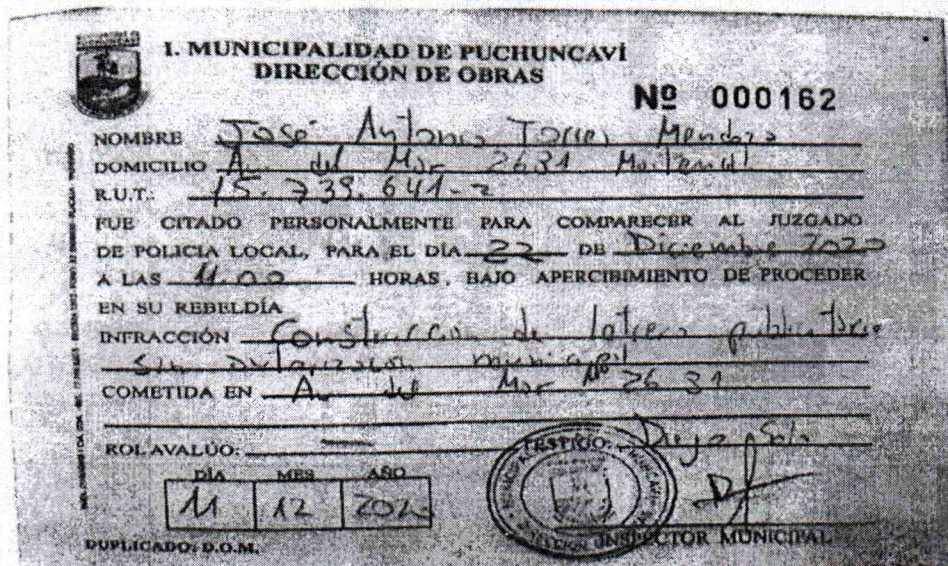 I. MUNICIPALIDAD DE PUCHUNCAVÍ
DIRECCIÓN DE OBRAS
Nº 000162
NOMBRE José Antonio Torres Mendoza
DOMICILIO Av del Mar 2631 Maitencillo
R.U.T.: 15.739.641-2
FUE CITADO PERSONALMENTE PARA COMPARECER AL JUZGADO
DE POLICIA LOCAL, PARA EL DÍA 22 DE Diciembre 2020
A LAS 11.00 HORAS, BAJO APERCIBIMIENTO DE PROCEDER
EN SU REBELDÍA
INFRACCIÓN Construccion de letrero publicitario
sin autorizacion municipal
COMETIDA EN Av del Mar Nº 2631
ROL AVALÚO: —
TESTIGO: Diego Soto
DÍA MES AÑO
11 12 2020
INSPECTOR MUNICIPAL
DUPLICADO: D.O.M.